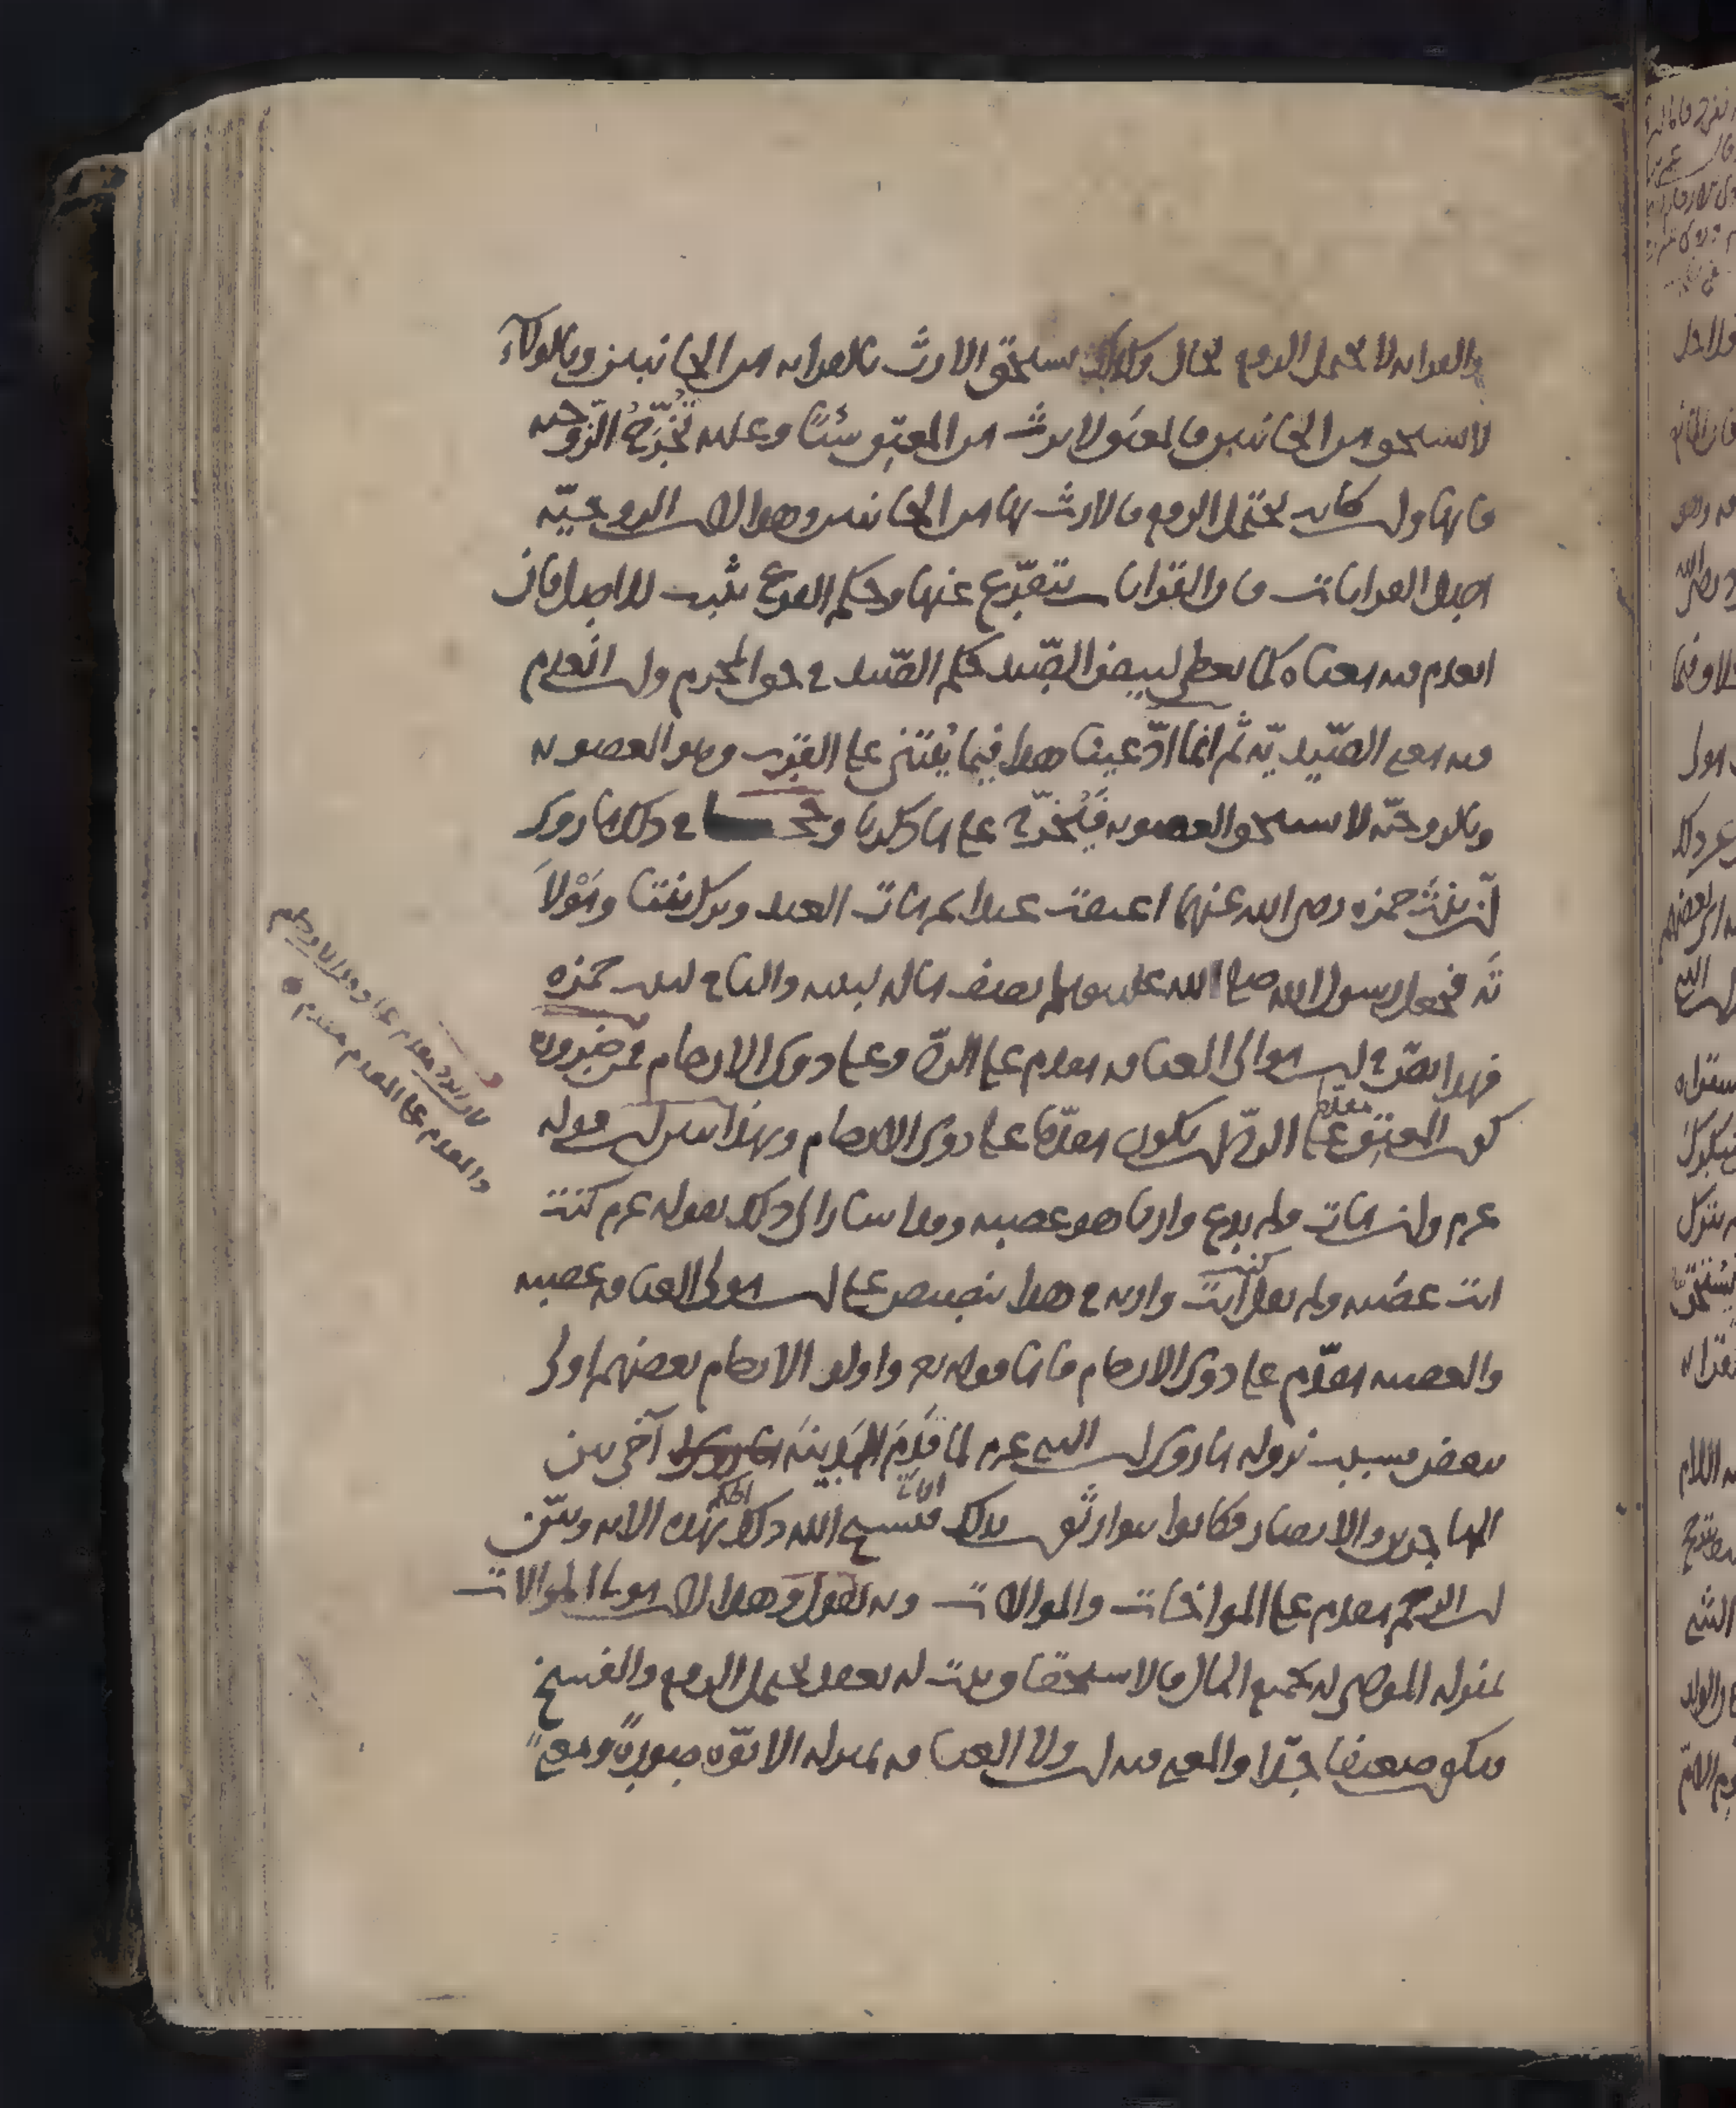 والقرابة لا تحتمل الدفع بحال وكذلك يستحق الارث بالقرابة من الجانبين وبالولاء
لا يستحق من الجانبين فالمعتَق لا يرث من المعتِق شيئًا وعليه تُخَرَّجُ الزوجية
فانها وان كانت تحتمل الدفع فالارث بها من الجانبين وهذا لان الزوجيّة
اصل القرابات فان القرابات تتفرّع عنها وحكم الفرع يثبت للاصل فان
انعدم فيه معناه كما يعطى لبيض الصّيد حكم الصّيد في حق المحرم وان انعدم
فيه معنى الصّيديّة ثم انما ادّعينا هذا فيما يُبتنى على القرب وهو العصوبة
وبالزوجيّة لا يستحق العصوبة فَيُخرّج على ما ذكرنا وحجتنا في ذلك ما روى
انّ بنتَ حمزة رضى الله عنهما اعتقت عبدا ثم مات العبد وترك بنتا ومَوْلا
تَه فجعل رسول الله صلى الله عليه وسلم نصف ماله لبنته والباقى لبنت حمزة
فهذا نصّ في ان مولى العتاقة مقدم على الردّ وعلى ذوى الارحام فمن ضرورة
كون المعتِق مقدم على الردّ ان يكون مقدّما على ذوى الارحام وبهذا تبين ان قوله
عم وان مات ولم يدع وارثا هو عصبة وقد اشار الى ذلك بقوله عم كنت
انت عصبته ولم يقل كنت انت وارثه في هذا تنصيص على ان مولى العتاقة عصبة
والعصبة مقدّم على ذوى الارحام فاما قوله تع واولو الارحام بعضهم اولى
ببعض فسبب نزوله ما روى ان النبى عم لما قَدِمَ المَدِينَة آخى بين
المهاجرين والانصار فكانوا يتوارثون بذلك فنسخ الله ذلك الحكم بهذه الاية وبيّن
ان الرحم مقدم على المواخات والموالات وبه نقول وهذا لان مولى الموالات
بمنزلة الموصى له بجميع المال فالاستحقاق يثبت له بعقد يحتمل الدفع والفسخ
فيكون ضعيفا جدّا والمعنى فيه ان ولاء العتاقة بمنزلة الابوّة صورةً ومعنىً
فان الرد مقدم على ذوى الارحام
والمقدم على المقدم مقدم